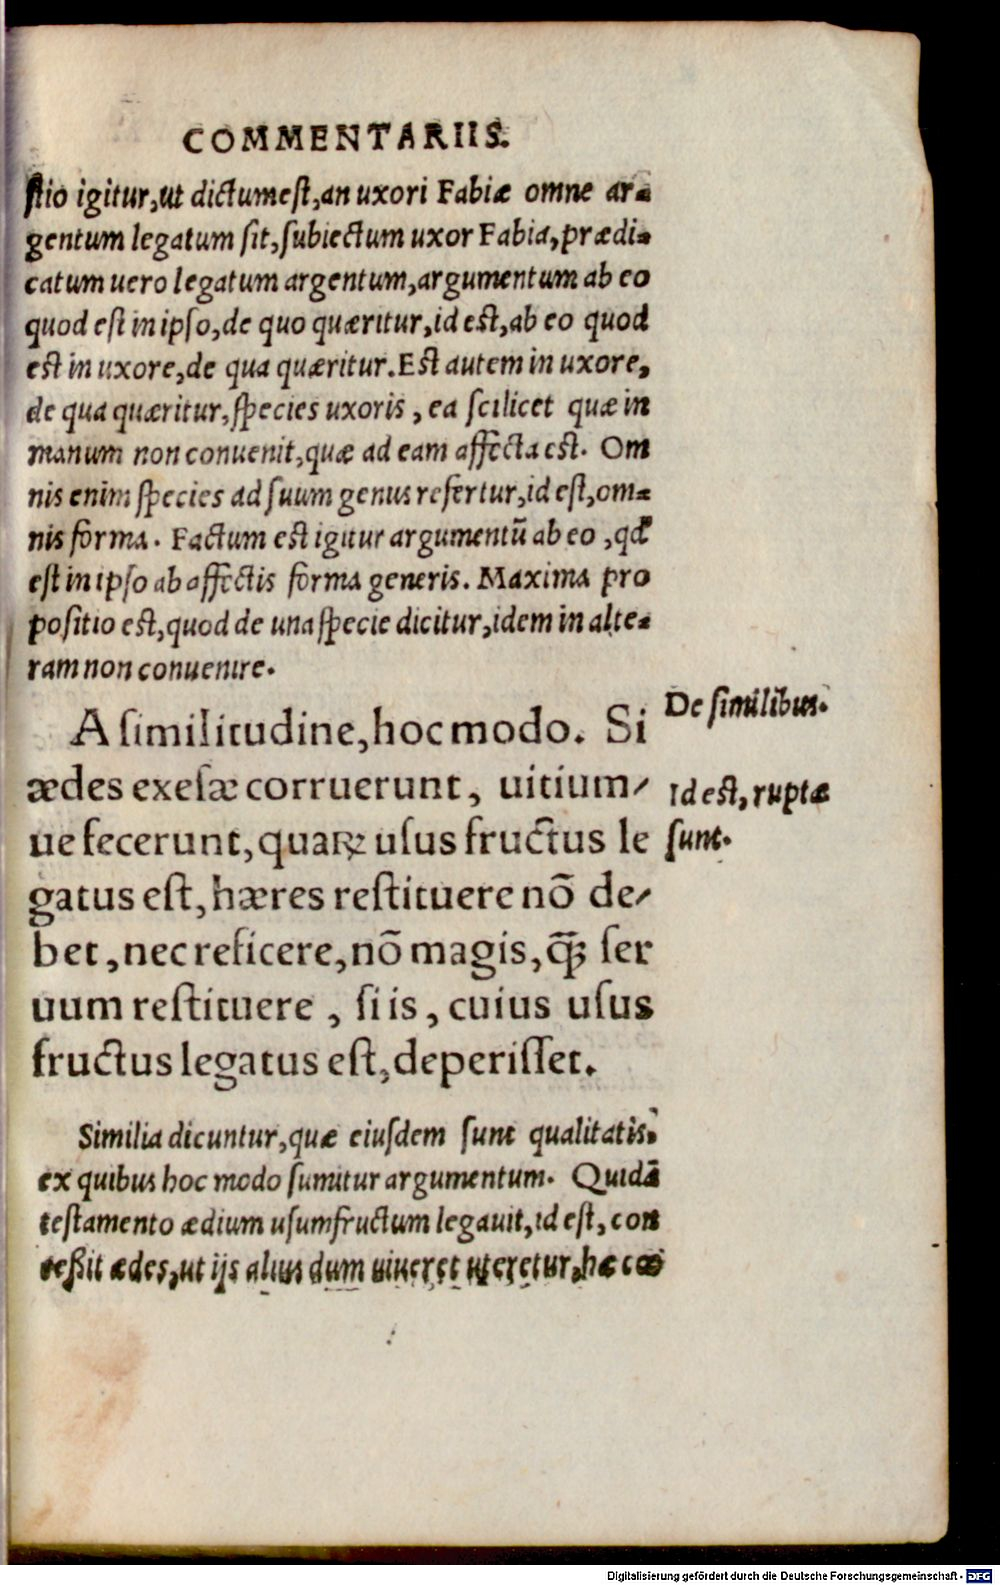 COMMENTARIIS.
ſtio igitur, ut dictum eſt, an uxori Fabiæ omne ar-
gentum legatum ſit, ſubiectum uxor Fabia, prædi-
catum uero legatum argentum, argumentum ab eo
quod eſt in ipſo, de quo quæritur, id eſt, ab eo quod
eſt in uxore, de qua quæritur. Eſt autem in uxore,
de qua quæritur, ſpecies uxoris, ea ſcilicet quæ in
manum non conuenit, quæ ad eam affecta eſt. Om
nis enim ſpecies ad ſuum genus refertur, id eſt, om-
nis forma. Factum eſt igitur argumentũ ab eo, qđ
eſt in ipſo ab affectis forma generis. Maxima pro
poſitio eſt, quod de una ſpecie dicitur, idem in alte-
ram non conuenire.
A ſimilitudine, hoc modo. Si
ædes exeſæ corruerunt, uitium-
ue fecerunt, quaꝝ uſus fructus le
gatus eſt, hæres reſtituere nõ de-
bet, nec reficere, nõ magis, ꝙ̃ ſer
uum reſtituere, ſi is, cuius uſus
fructus legatus eſt, deperiſſet.
De ſimilibus.
Id eſt, ruptæ
ſunt.
Similia dicuntur, quæ eiuſdem ſunt qualitatis.
ex quibus hoc modo ſumitur argumentum. Quidã
teſtamento ædium uſumfructum legauit, id eſt, con
ceßit ædes, ut ijs alius dum uiueret uteretur, hæ
Digitalisierung gefördert durch die Deutsche Forschungsgemeinschaft - DFG